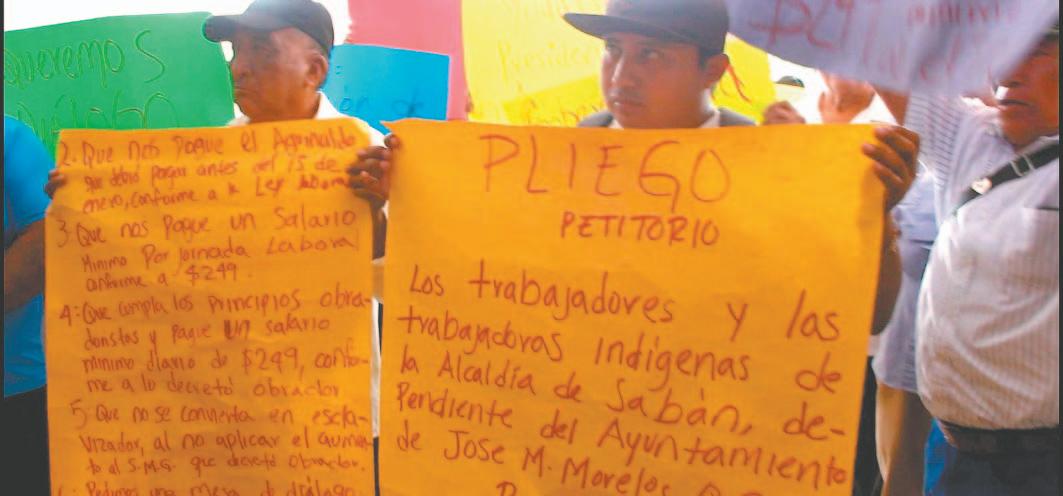 Queremos
Diálogo
2. Que nos pague el Aguinaldo
que debió pagar antes del 15 de
enero, conforme a la Ley laboral
3. Que nos Pague un Salario
Minimo Por Jornada Laboral
conforme a $249.
4: Que cumpla los principios obra-
doristas y pague un salario
minimo diario de $249, confor-
me a lo decretó obrador
5: Que no se convierta en escla-
vizador, al no aplicar el aumen-
to al S.M.G. que decretó Obrador.
6: Pedimos una mesa de diálogo
PLIEGO
PETITORIO
Los trabajadores y las
trabajadoras indígenas de
la Alcaldía de Sabán, de-
Pendiente del Ayuntamiento
de Jose M. Morelos
Presiden
$249